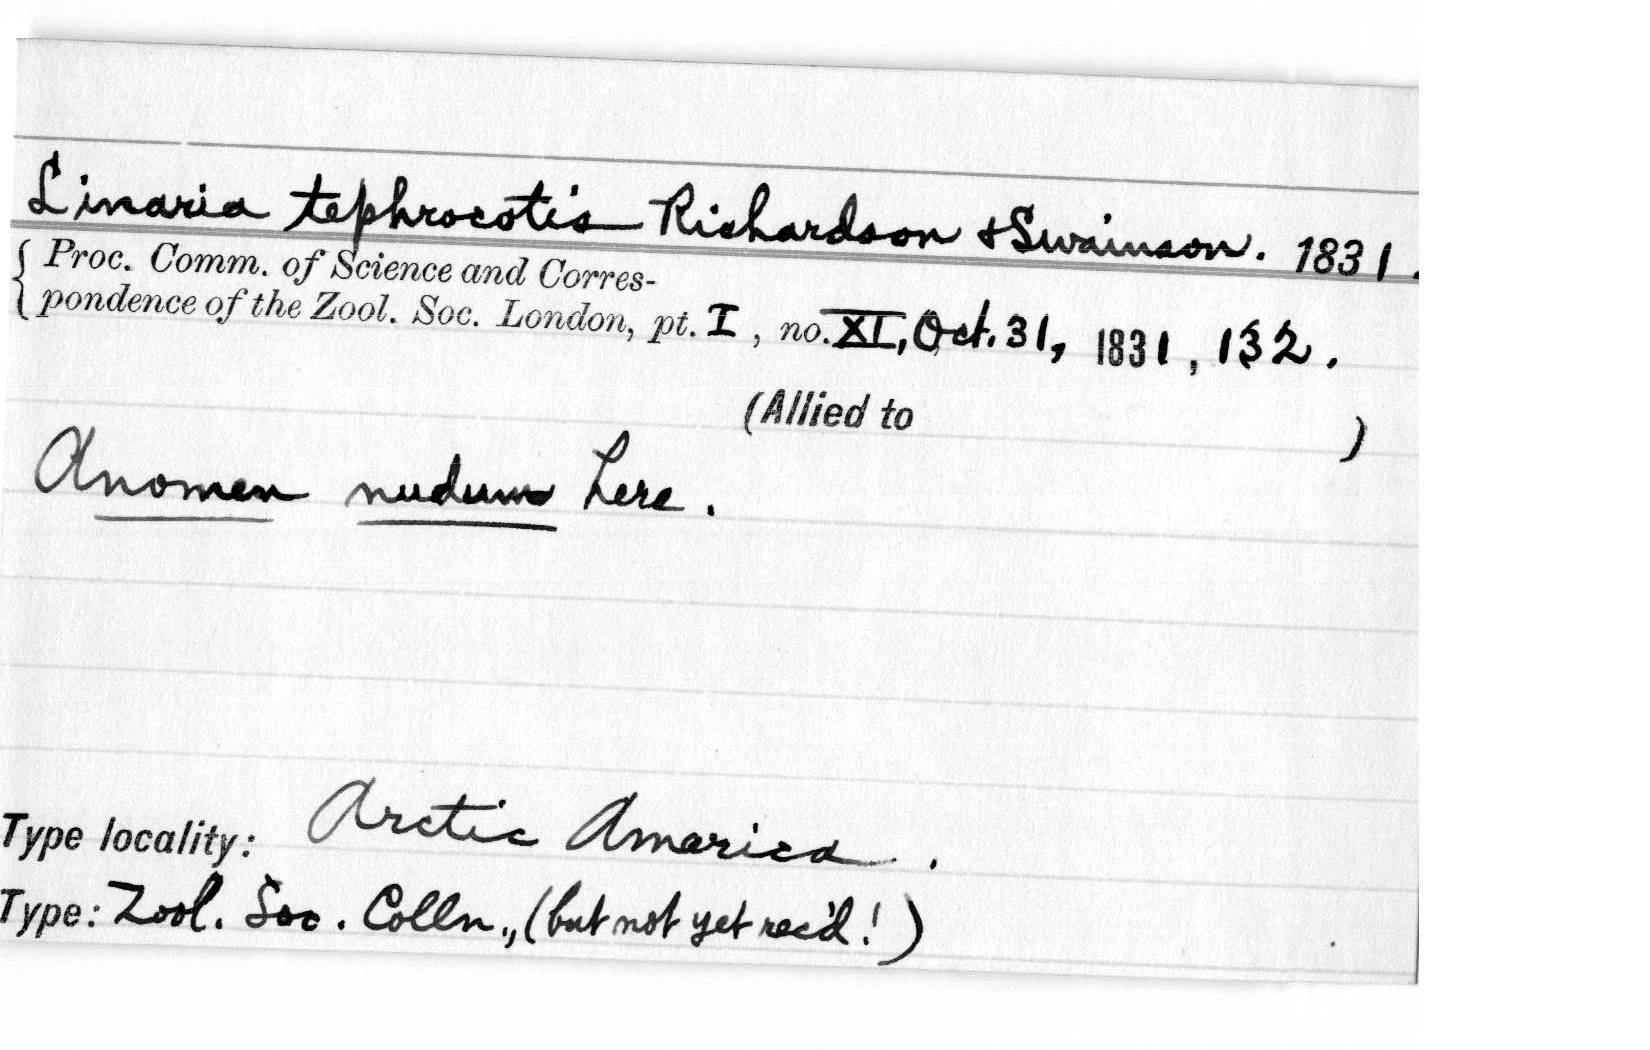 Linaria tephrocotis Richardson & Swainson. 1831.
{ Proc. Comm. of Science and Corres-
pondence of the Zool. Soc. London, pt. I, no. XI, Oct. 31, 1831, 132.
(Allied to )
A nomen nudum here.
Type locality: Arctic America.
Type: Zool. Soc. Colln., (but not yet rec'd!)